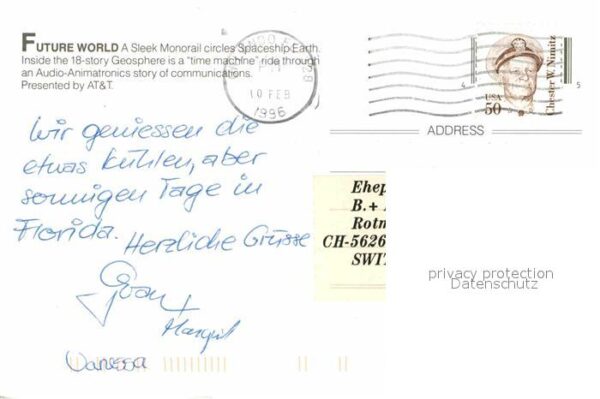 FUTURE WORLD A Sleek Monorail circles Spaceship Earth.
Inside the 18-story Geosphere is a "time machine" ride through
an Audio-Animatronics story of communications.
Presented by AT&T.
10 FEB
1996
Chester W. Nimitz
USA
50
4
5
ADDRESS
Wir geniessen die
etwas kühlen, aber
sonnigen Tage in
Florida.
Herzliche Grüsse
Margrit
Vanessa
Ehep
B. +
Rotm
CH-5626
SWIT
privacy protection
Datenschutz